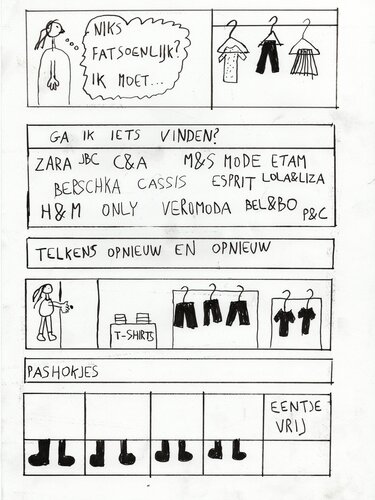 NIKS
FATSOENLIJK?
IK MOET...
GA IK IETS VINDEN?
ZARA JBC C&A M&S MODE ETAM
BERSCHKA CASSIS ESPRIT LOLA&LIZA
H&M ONLY VEROMODA BEL&BO P&C
TELKENS OPNIEUW EN OPNIEUW
T-SHIRTS
PASHOKJES
EENTJE
VRIJ